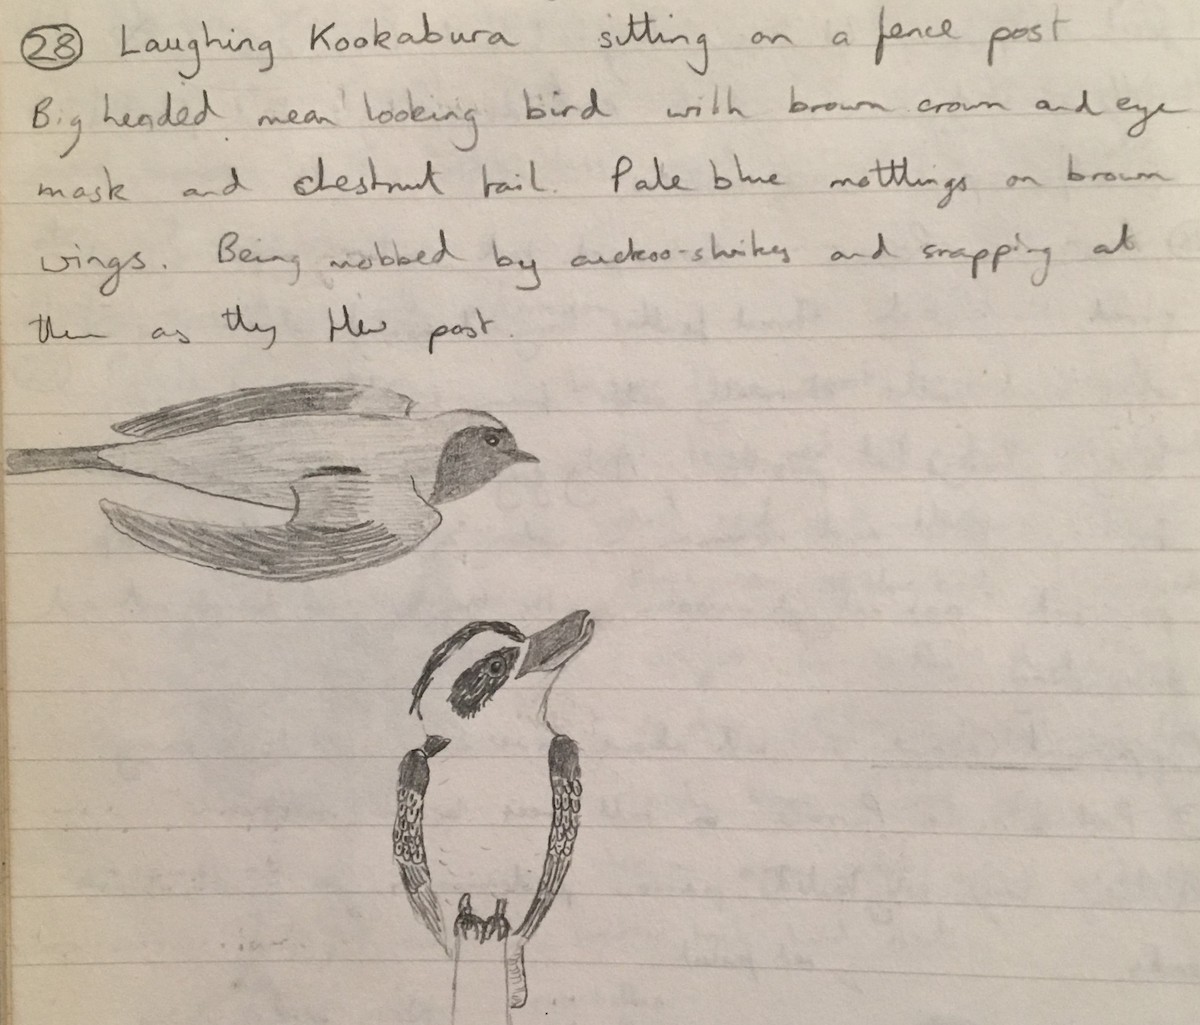 28 Laughing Kookabura sitting on a fence post
Big headed mean looking bird with brown crown and eye
mask and chestnut tail. Pale blue mottlings on brown
wings. Being mobbed by cuckoo-shrikes and snapping at
them as they flew past.